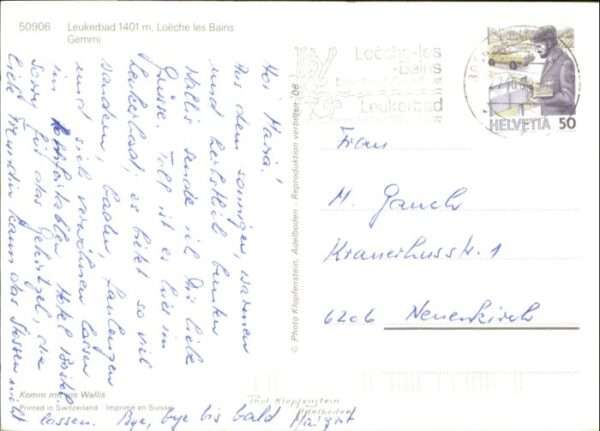 50906 Loeukerbad 1401 m, Loèche les Bains
Gemmi
Hoi Maria!
Aus dem sonnigen, warmen
und herbstlich bunten
Wallis sende ich Dir liebe
Grüsse. Toll ist es hier in
Leukerbad, es gibt so viel
wandern, baden, faulenzen
und sich verwöhnen lassen
im komfortablen Hotel
Sorry für das Gekritzel, eine
liebe Freundin kann das Stossen nicht
lassen. Bye, bye bis bald
Komm mit ins Wallis
Printed in Switzerland Imprimé en Suisse
© Photo Klopfenstein, Adelboden Reproduktion verboten
Loèche-les
-Bains
Leukerbad
HELVETIA 50
Frau
M. Gauch
Kranerhusstr. 1
6206 Neuenkirch
Phot Klopfenstein
Adelboden